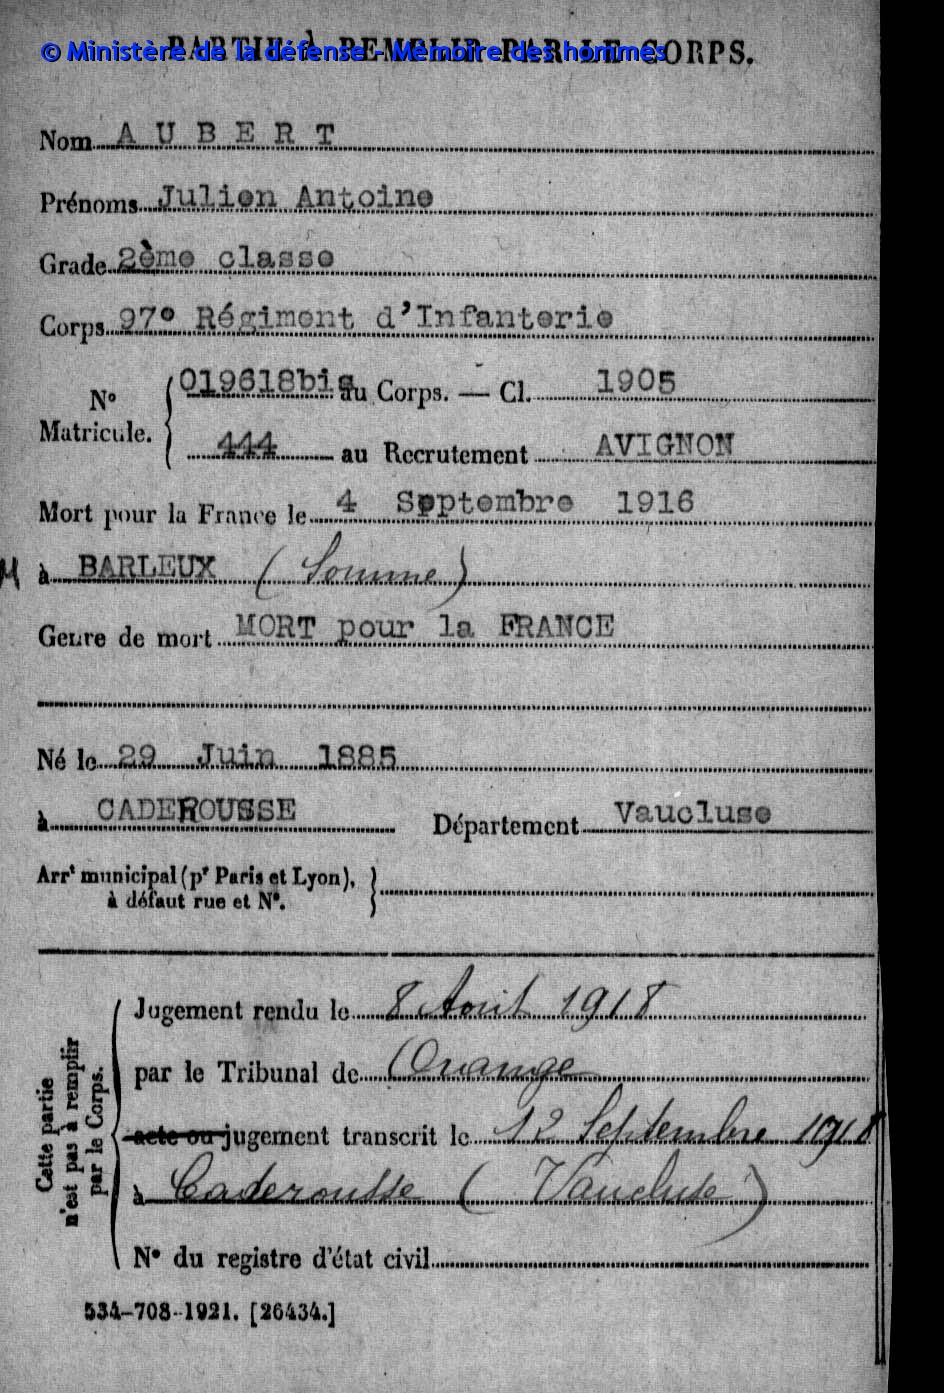 PARTIE À REMPLIR PAR LE CORPS.
© Ministère de la défense - Mémoire des hommes
Nom A U B E R T
Prénoms Julien Antoine
Grade 2ème classe
Corps 97e Régiment d'Infanterie
N° Matricule. 019618bis au Corps. — Cl. 1905
444 au Recrutement AVIGNON
Mort pour la France le 4 Septembre 1916
à BARLEUX (Somme)
Genre de mort MORT pour la FRANCE
Né le 29 Juin 1885
à CADEROUSSE Département Vaucluse
Arrt municipal (pr Paris et Lyon),
à défaut rue et N°.
Cette partie
n'est pas à remplir
par le Corps.
Jugement rendu le 8 Août 1918
par le Tribunal de Orange
acte ou jugement transcrit le 12 Septembre 1918
à Caderousse (Vaucluse)
N° du registre d'état civil
534-708-1921. [26434.]